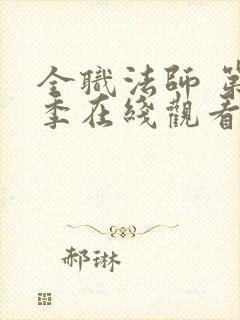 全職法師 第
季在綫觀看
郝琳